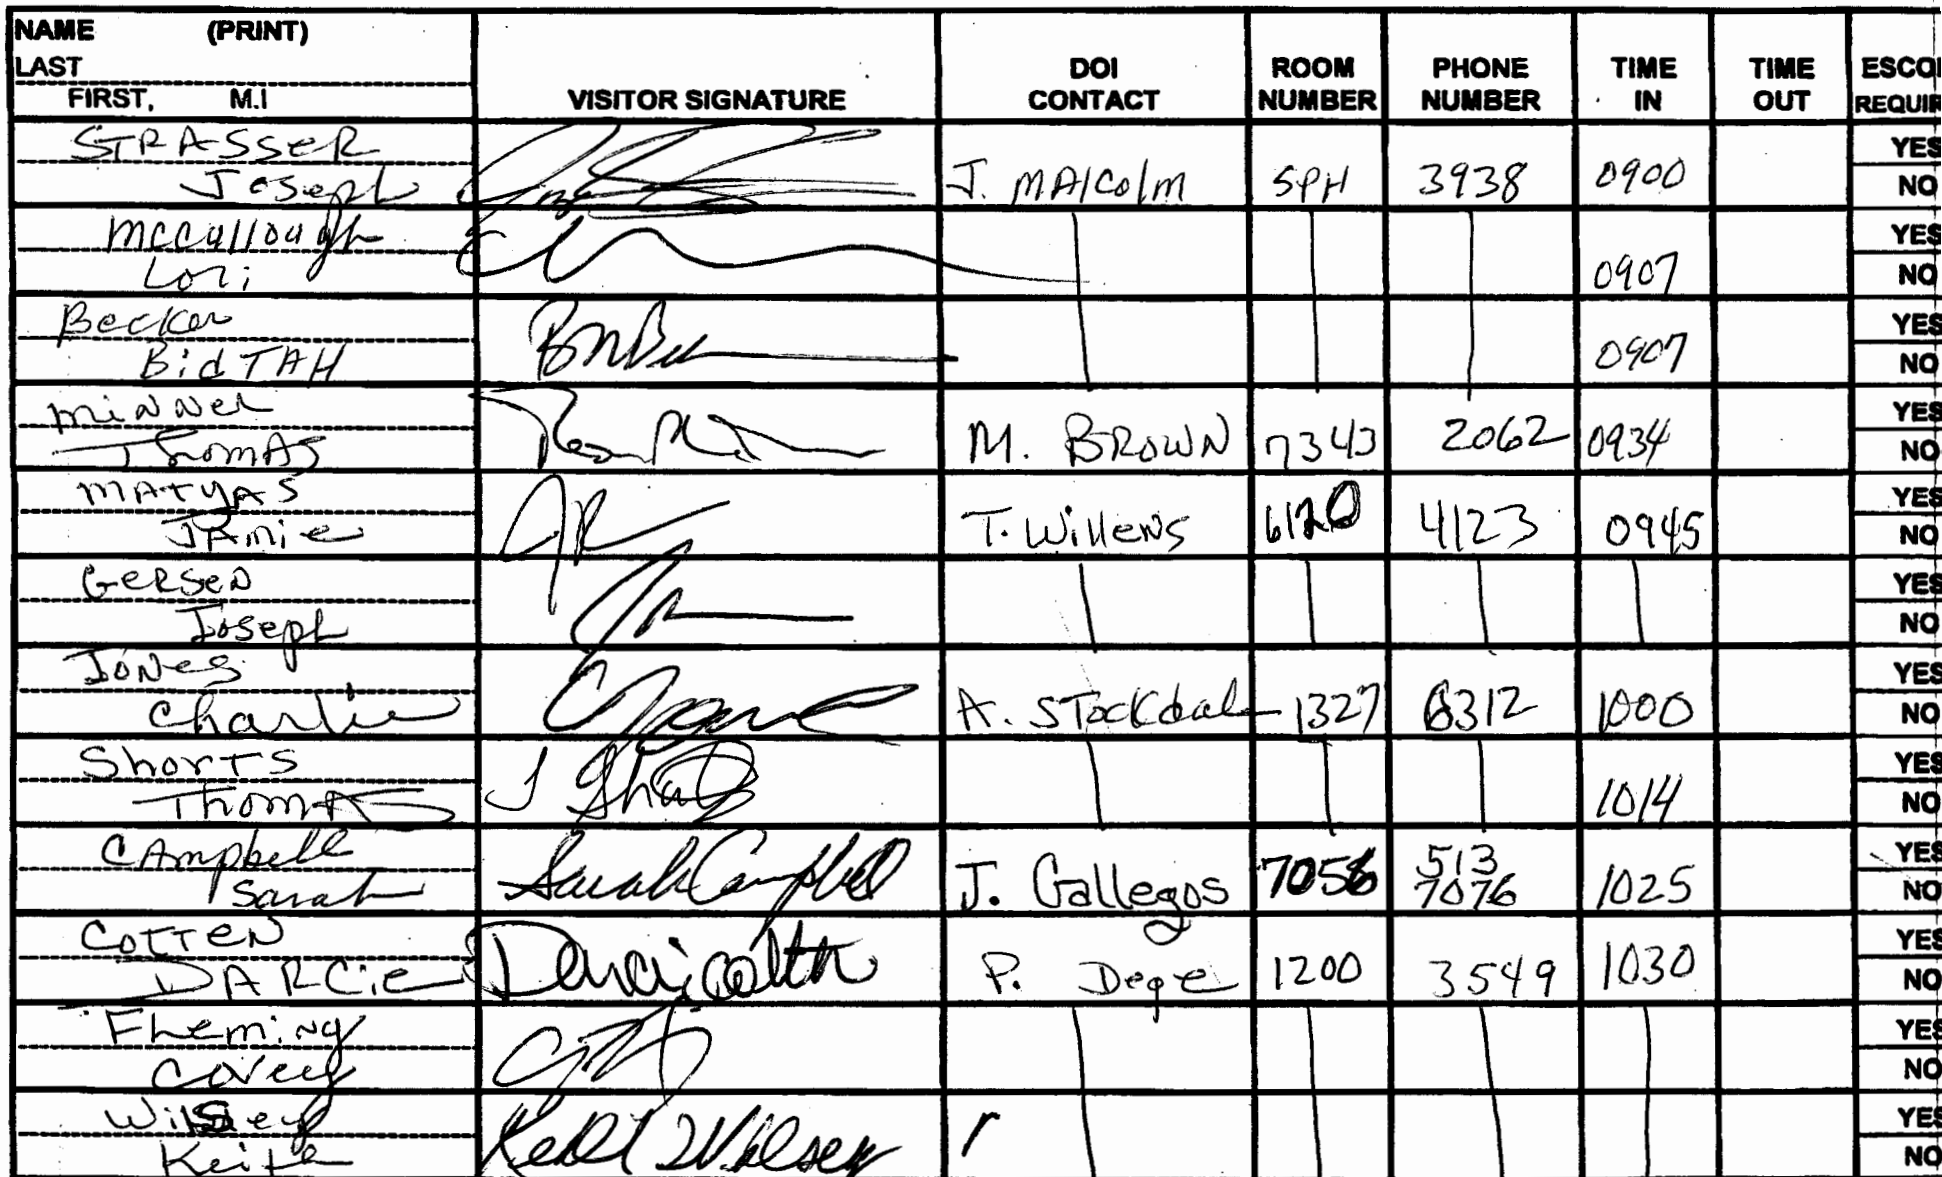 NAME (PRINT)
LAST
FIRST, M.I
VISITOR SIGNATURE
DOI CONTACT
ROOM NUMBER
PHONE NUMBER
TIME IN
TIME OUT
ESCO
REQUIR
STRASSER
Joseph
J. MAlcolm SPH 3938 0900
YES
NO
McCullough
Lori
0907
YES
NO
Becker
BidTAH
0907
YES
NO
Minner
Thomas
M. BROWN 7343 2062 0934
YES
NO
MATYAS
JAmie
T. Willens 6120 4123 0945
YES
NO
GERSEN
Joseph
YES
NO
JONes
Charlie
A. STockdale 1327 6312 1000
YES
NO
ShorTS
ThomAS
1014
YES
NO
CAmpbell
Sarah
Sarah Campbell
J. Gallegos 7056 513 7076 1025
YES
NO
COTTEN
DARCie
P. Dege 1200 3549 1030
YES
NO
FLeming
Corey
YES
NO
Wilsey
Keith
Keith Wilsey
YES
NO